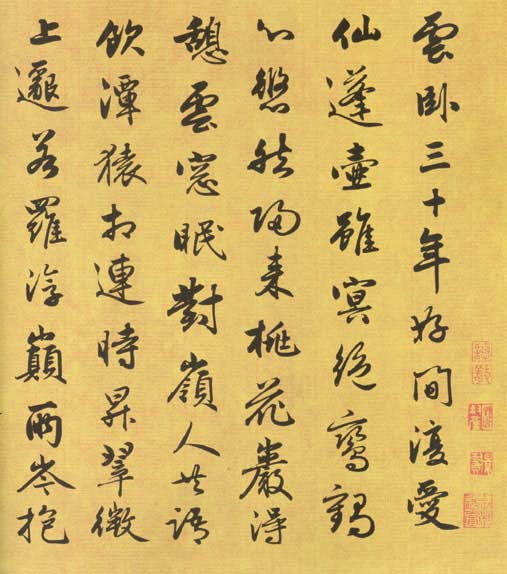 雲卧三十年好間復愛
仙蓬壺雖冥絕鸞鶴
心悠然歸來桃花巖得
憩雲窓眠對嶺人共語
飲潭猿相連時昇翠微
上邈若羅浮巔兩岑抱